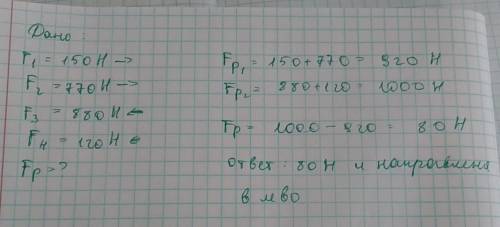 Дано:
F₁ = 150 Н →
F₂ = 770 Н →
F₃ = 880 Н ←
F₄ = 120 Н ←
Fр = ?
Fр₁ = 150 + 770 = 920 Н
Fр₂ = 880 + 120 = 1000 Н
Fр = 1000 - 920 = 80 Н
ответ: 80 Н и направлена
в лво